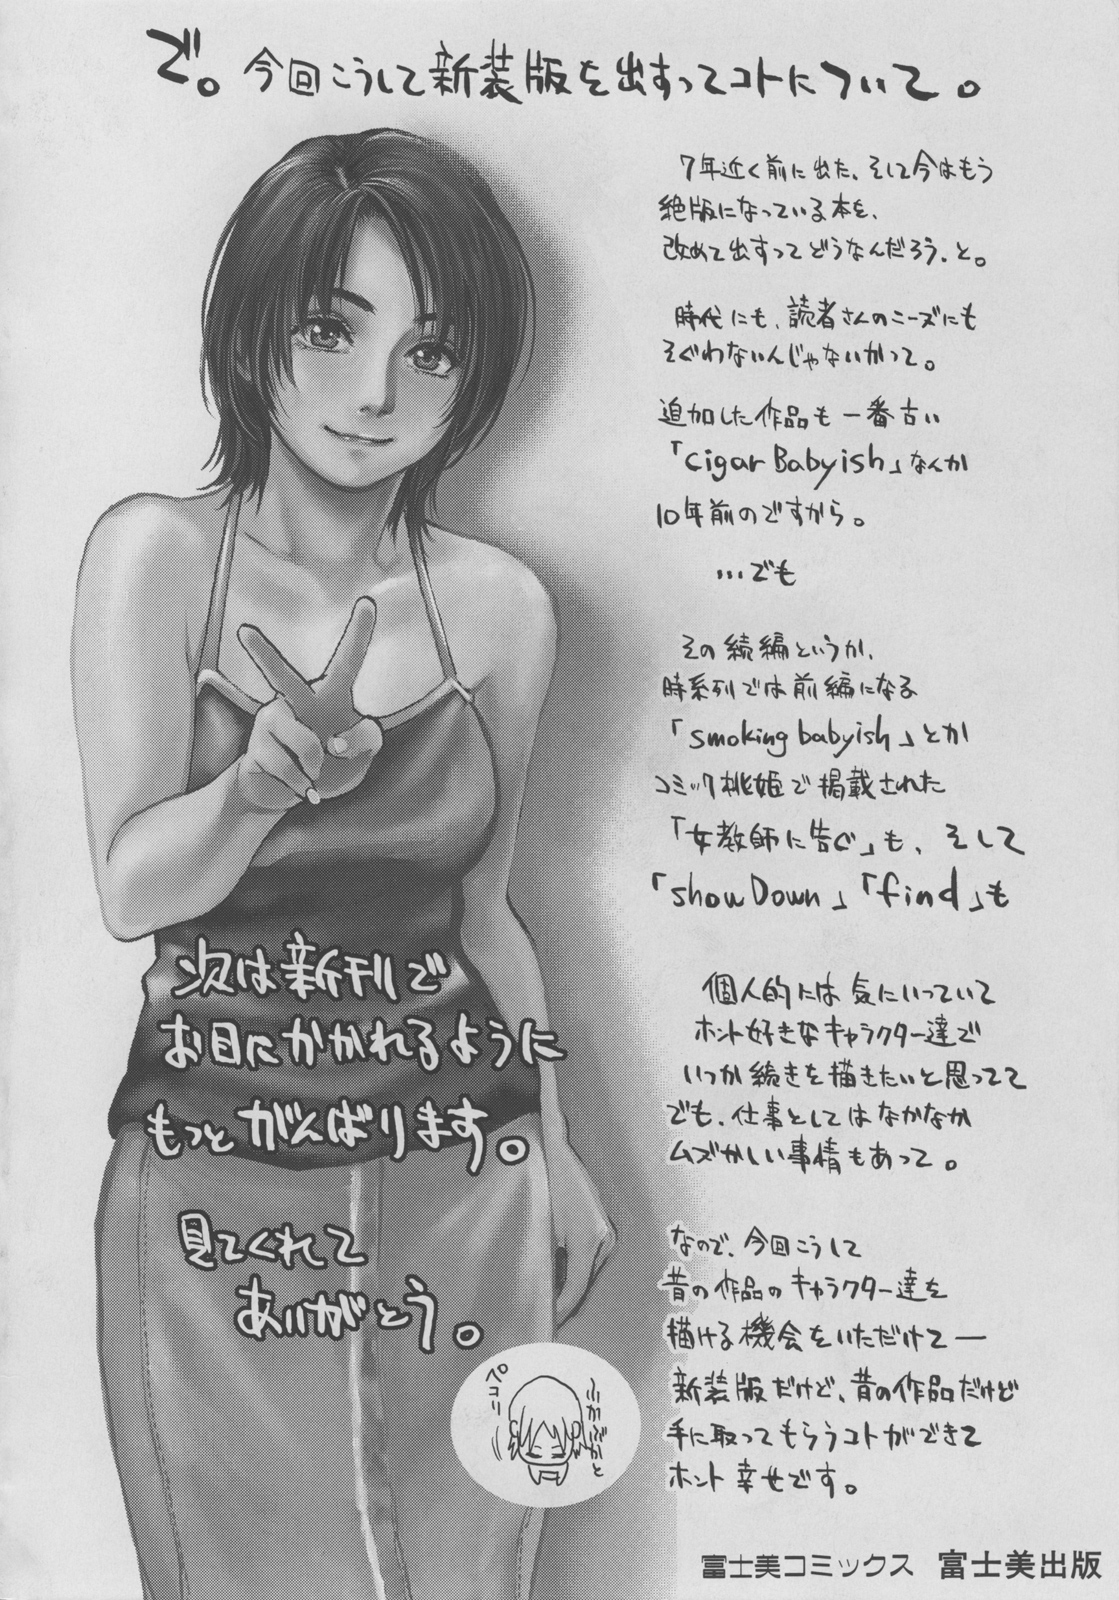 で。今回こうして新装版を出すってコトについて。
7年近く前に出た、そして今はもう
絶版になっている本を、
改めて出すってどうなんだろう、と。
時代にも、読者さんのニーズにも
そぐわないんじゃないかって。
追加した作品も一番古い
「cigar Babyish」なんか
10年前のですから。
…でも
その続編というか、
時系列では前編になる
「smoking babyish」とか
コミック桃姫で掲載された
「女教師に告ぐ」も、そして
「show Down」「find」も
個人的には気にいっていて
ホント好きなキャラクター達で
いつか続きを描きたいと思ってて
でも、仕事としてはなかなか
ムズかしい事情もあって。
なので、今回こうして
昔の作品のキャラクター達を
描ける機会をいただけて―
新装版だけど、昔の作品だけど
手に取ってもらうコトができて
ホント幸せです。
次は新刊で
お目にかかれるように
もっとがんばります。
見てくれて
ありがとう。
ペコリ
富士美コミックス 富士美出版